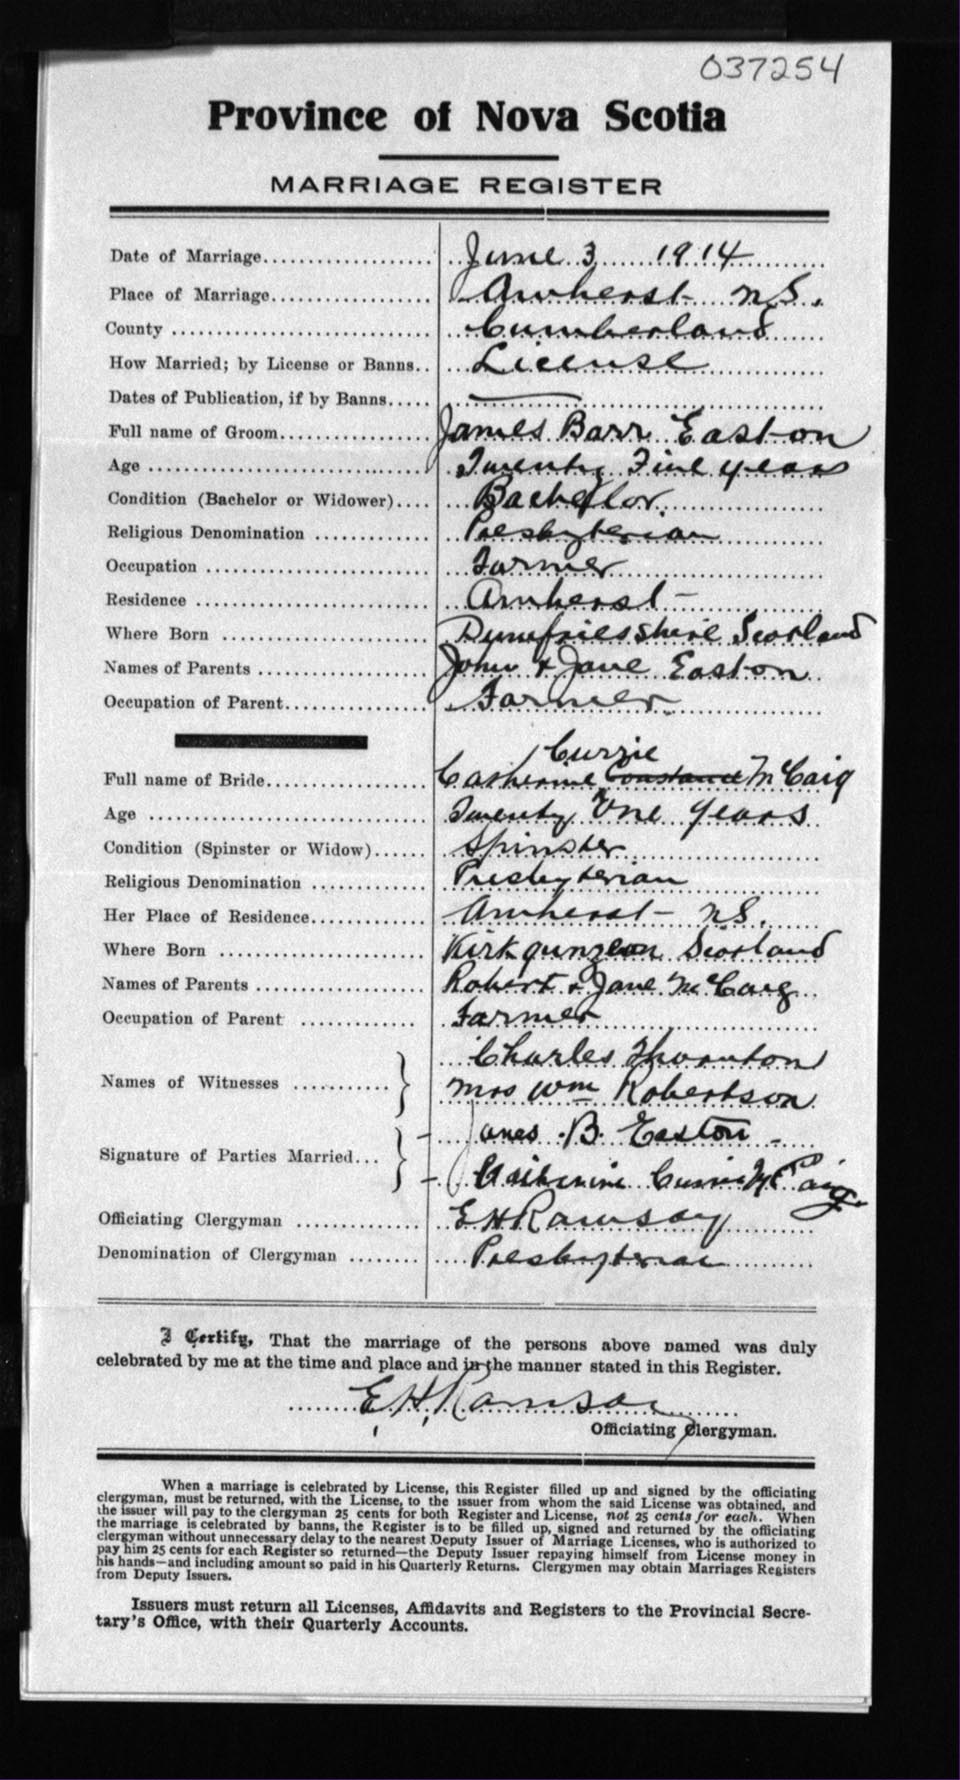 037254
Province of Nova Scotia
MARRIAGE REGISTER
Date of Marriage.................... June 3 1914
Place of Marriage................... Amherst N.S.
County .............................. Cumberland
How Married; by License or Banns.. License
Dates of Publication, if by Banns..... ———
Full name of Groom.................. James Barr Easton
Age .................................. Twenty Five years
Condition (Bachelor or Widower).... Bachellor.
Religious Denomination .............. Presbyterian
Occupation .......................... Farmer
Residence ........................... Amherst -
Where Born ......................... Dumfriesshire Scotland
Names of Parents .................... John & Jane Easton
Occupation of Parent................. Farmer.
Currie
Full name of Bride................... Catherine Constance McCaig
Age .................................. Twenty One years
Condition (Spinster or Widow)...... Spinster.
Religious Denomination .............. Presbyterian
Her Place of Residence............... Amherst - N.S.
Where Born ......................... Kirkgunzeon Scotland
Names of Parents .................... Robert & Jane McCaig
Occupation of Parent ................ Farmer
Charles Thornton
Names of Witnesses ........... Mrs Wm Robertson
James B. Easton
Signature of Parties Married... Catherine Currie McCaig
Officiating Clergyman ............... E H Ramsay
Denomination of Clergyman ......... Presbyterian
I Certify, That the marriage of the persons above named was duly
celebrated by me at the time and place and in the manner stated in this Register.
E. H. Ramsay
Officiating Clergyman.
When a marriage is celebrated by License, this Register filled up and signed by the officiating
clergyman, must be returned, with the License, to the issuer from whom the said License was obtained, and
the issuer will pay to the clergyman 25 cents for both Register and License, not 25 cents for each. When
the marriage is celebrated by banns, the Register is to be filled up, signed and returned by the officiating
clergyman without unnecessary delay to the nearest Deputy Issuer of Marriage Licenses, who is authorized to
pay him 25 cents for each Register so returned—the Deputy Issuer repaying himself from License money in
his hands—and including amount so paid in his Quarterly Returns. Clergymen may obtain Marriages Registers
from Deputy Issuers.
Issuers must return all Licenses, Affidavits and Registers to the Provincial Secre-
tary's Office, with their Quarterly Accounts.